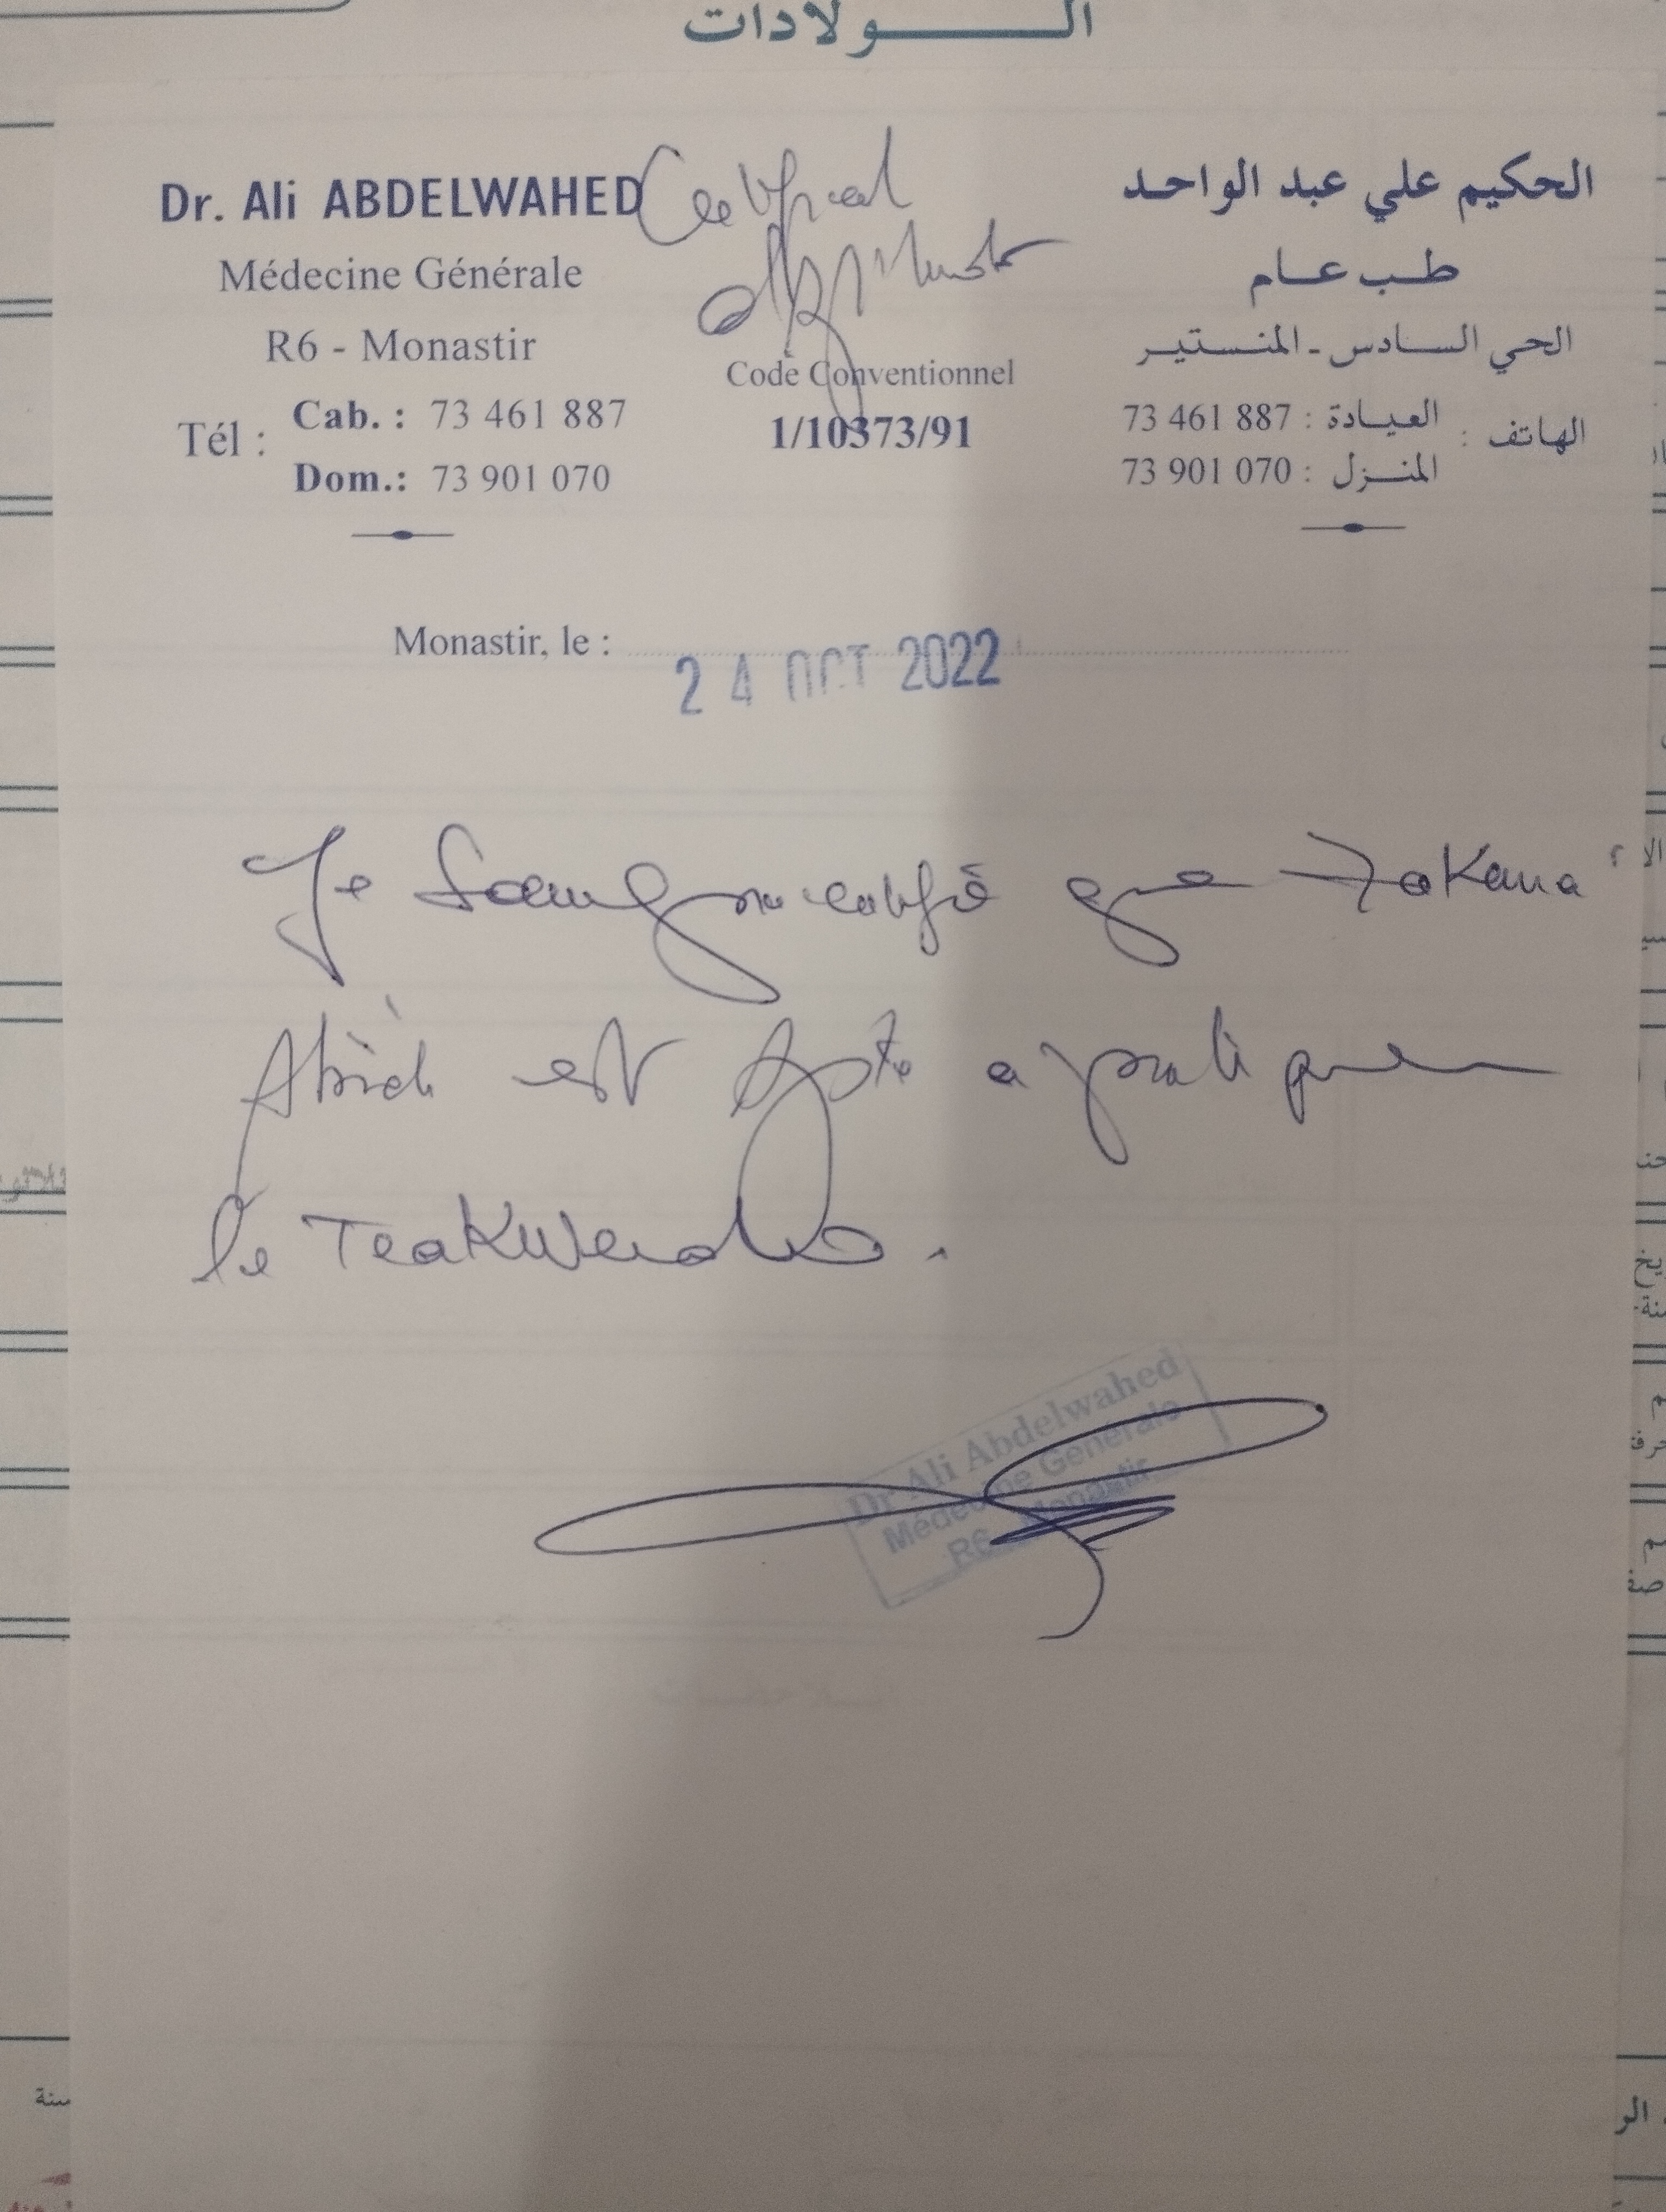 الـولادات
Dr. Ali ABDELWAHED
Médecine Générale
R6 - Monastir
Tél : Cab. : 73 461 887
Dom.: 73 901 070
Certificat
d'aptitude
Code Conventionnel
1/10373/91
الحكيم علي عبد الواحد
طب عام
الحي السادس - المنستير
الهاتف : العيادة : 73 461 887
المنزل : 73 901 070
Monastir, le :
24 OCT 2022
Je soussigné certifie que Zakaria
Abich est apte a pratiquer
le Teakwendo.
Dr Ali Abdelwahed
Médecine Générale
R6 - Monastir